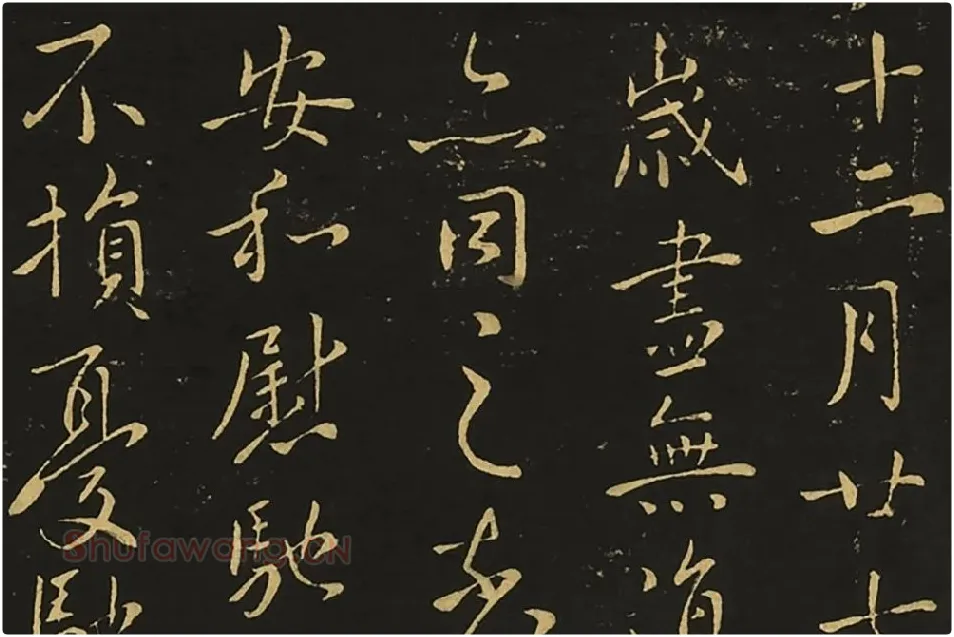 十二月廿
歲盡無
同之
安和慰馳
不損憂馳
Shufawang.CN